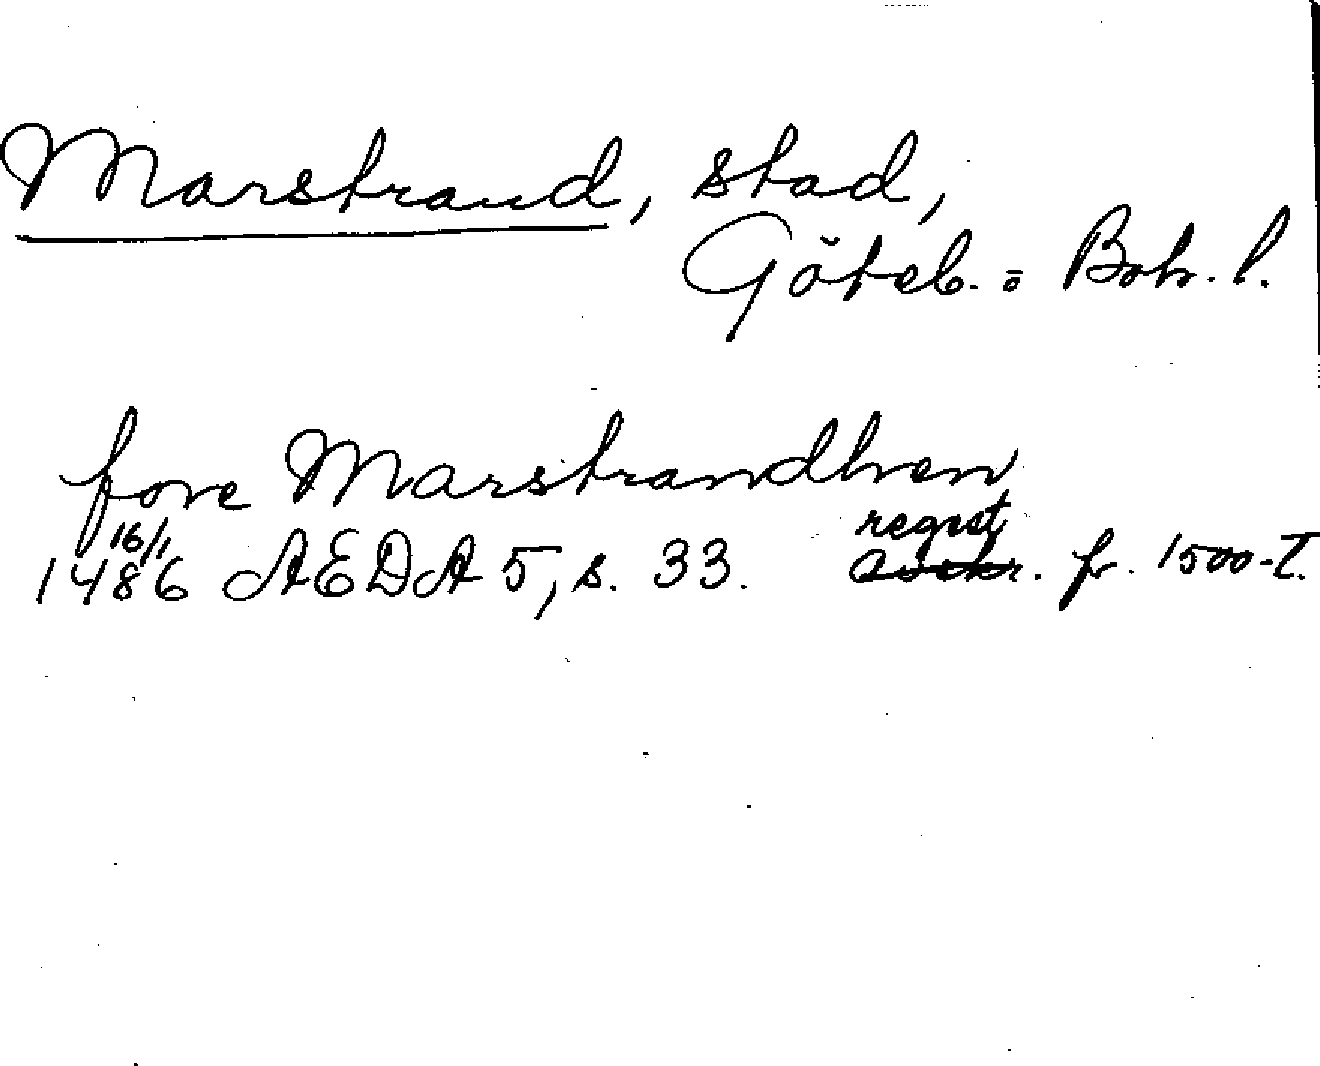 Marstrand, stad,
Göteb. o Boh. l.
fore Marstrandhven
16/1 regist
1486 AEDA 5, s. 33. avskr. fr. 1500-t.